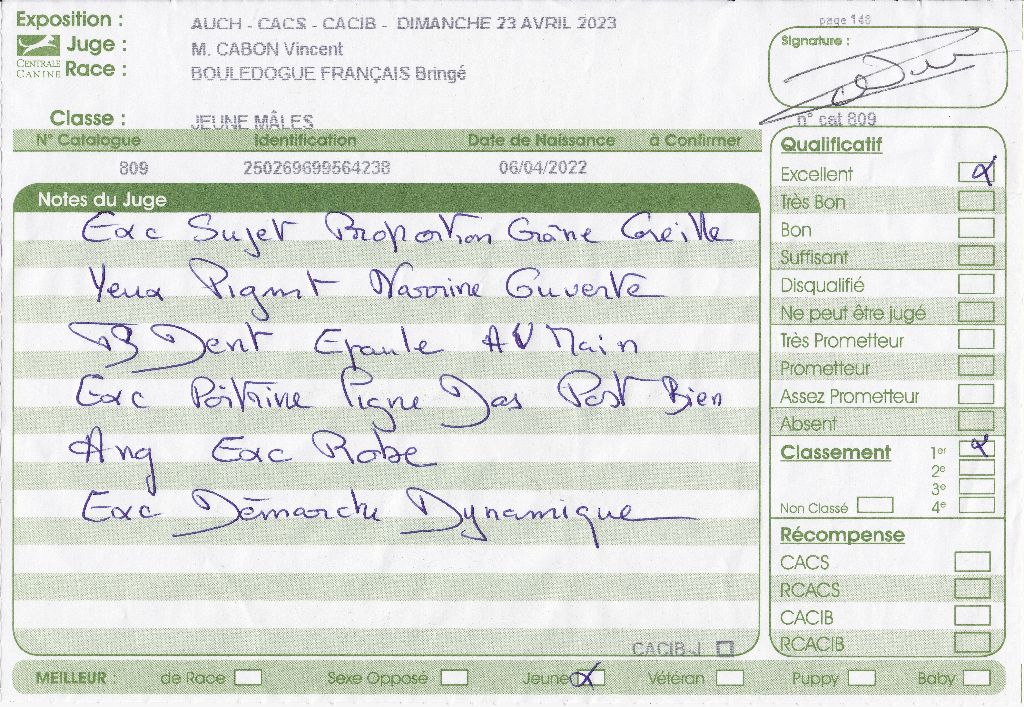 Exposition : AUCH - CACS - CACIB - DIMANCHE 23 AVRIL 2023
page 146
CENTRALE CANINE
Juge : M. CABON Vincent
Signature :
Race : BOULEDOGUE FRANÇAIS Bringé
Classe : JEUNE MÂLES
n° cat 809
N° Catalogue Identification Date de Naissance à Confirmer
809 250269699564238 06/04/2022
Notes du Juge
Exc Sujet Proportion Crâne Oreille
Yeux Pigmt Narrine Ouverte
TB Dent Epaule AV Main
Exc Poitrine Ligne Dos Post Bien
Ang Exc Robe
Exc Démarche Dynamique
CACIB-J
Qualificatif
Excellent X
Très Bon
Bon
Suffisant
Disqualifié
Ne peut être jugé
Très Prometteur
Prometteur
Assez Prometteur
Absent
Classement 1er X
2e
3e
Non Classé 4e
Récompense
CACS
RCACS
CACIB
RCACIB
MEILLEUR : de Race Sexe Opposé Jeune X Vétéran Puppy Baby